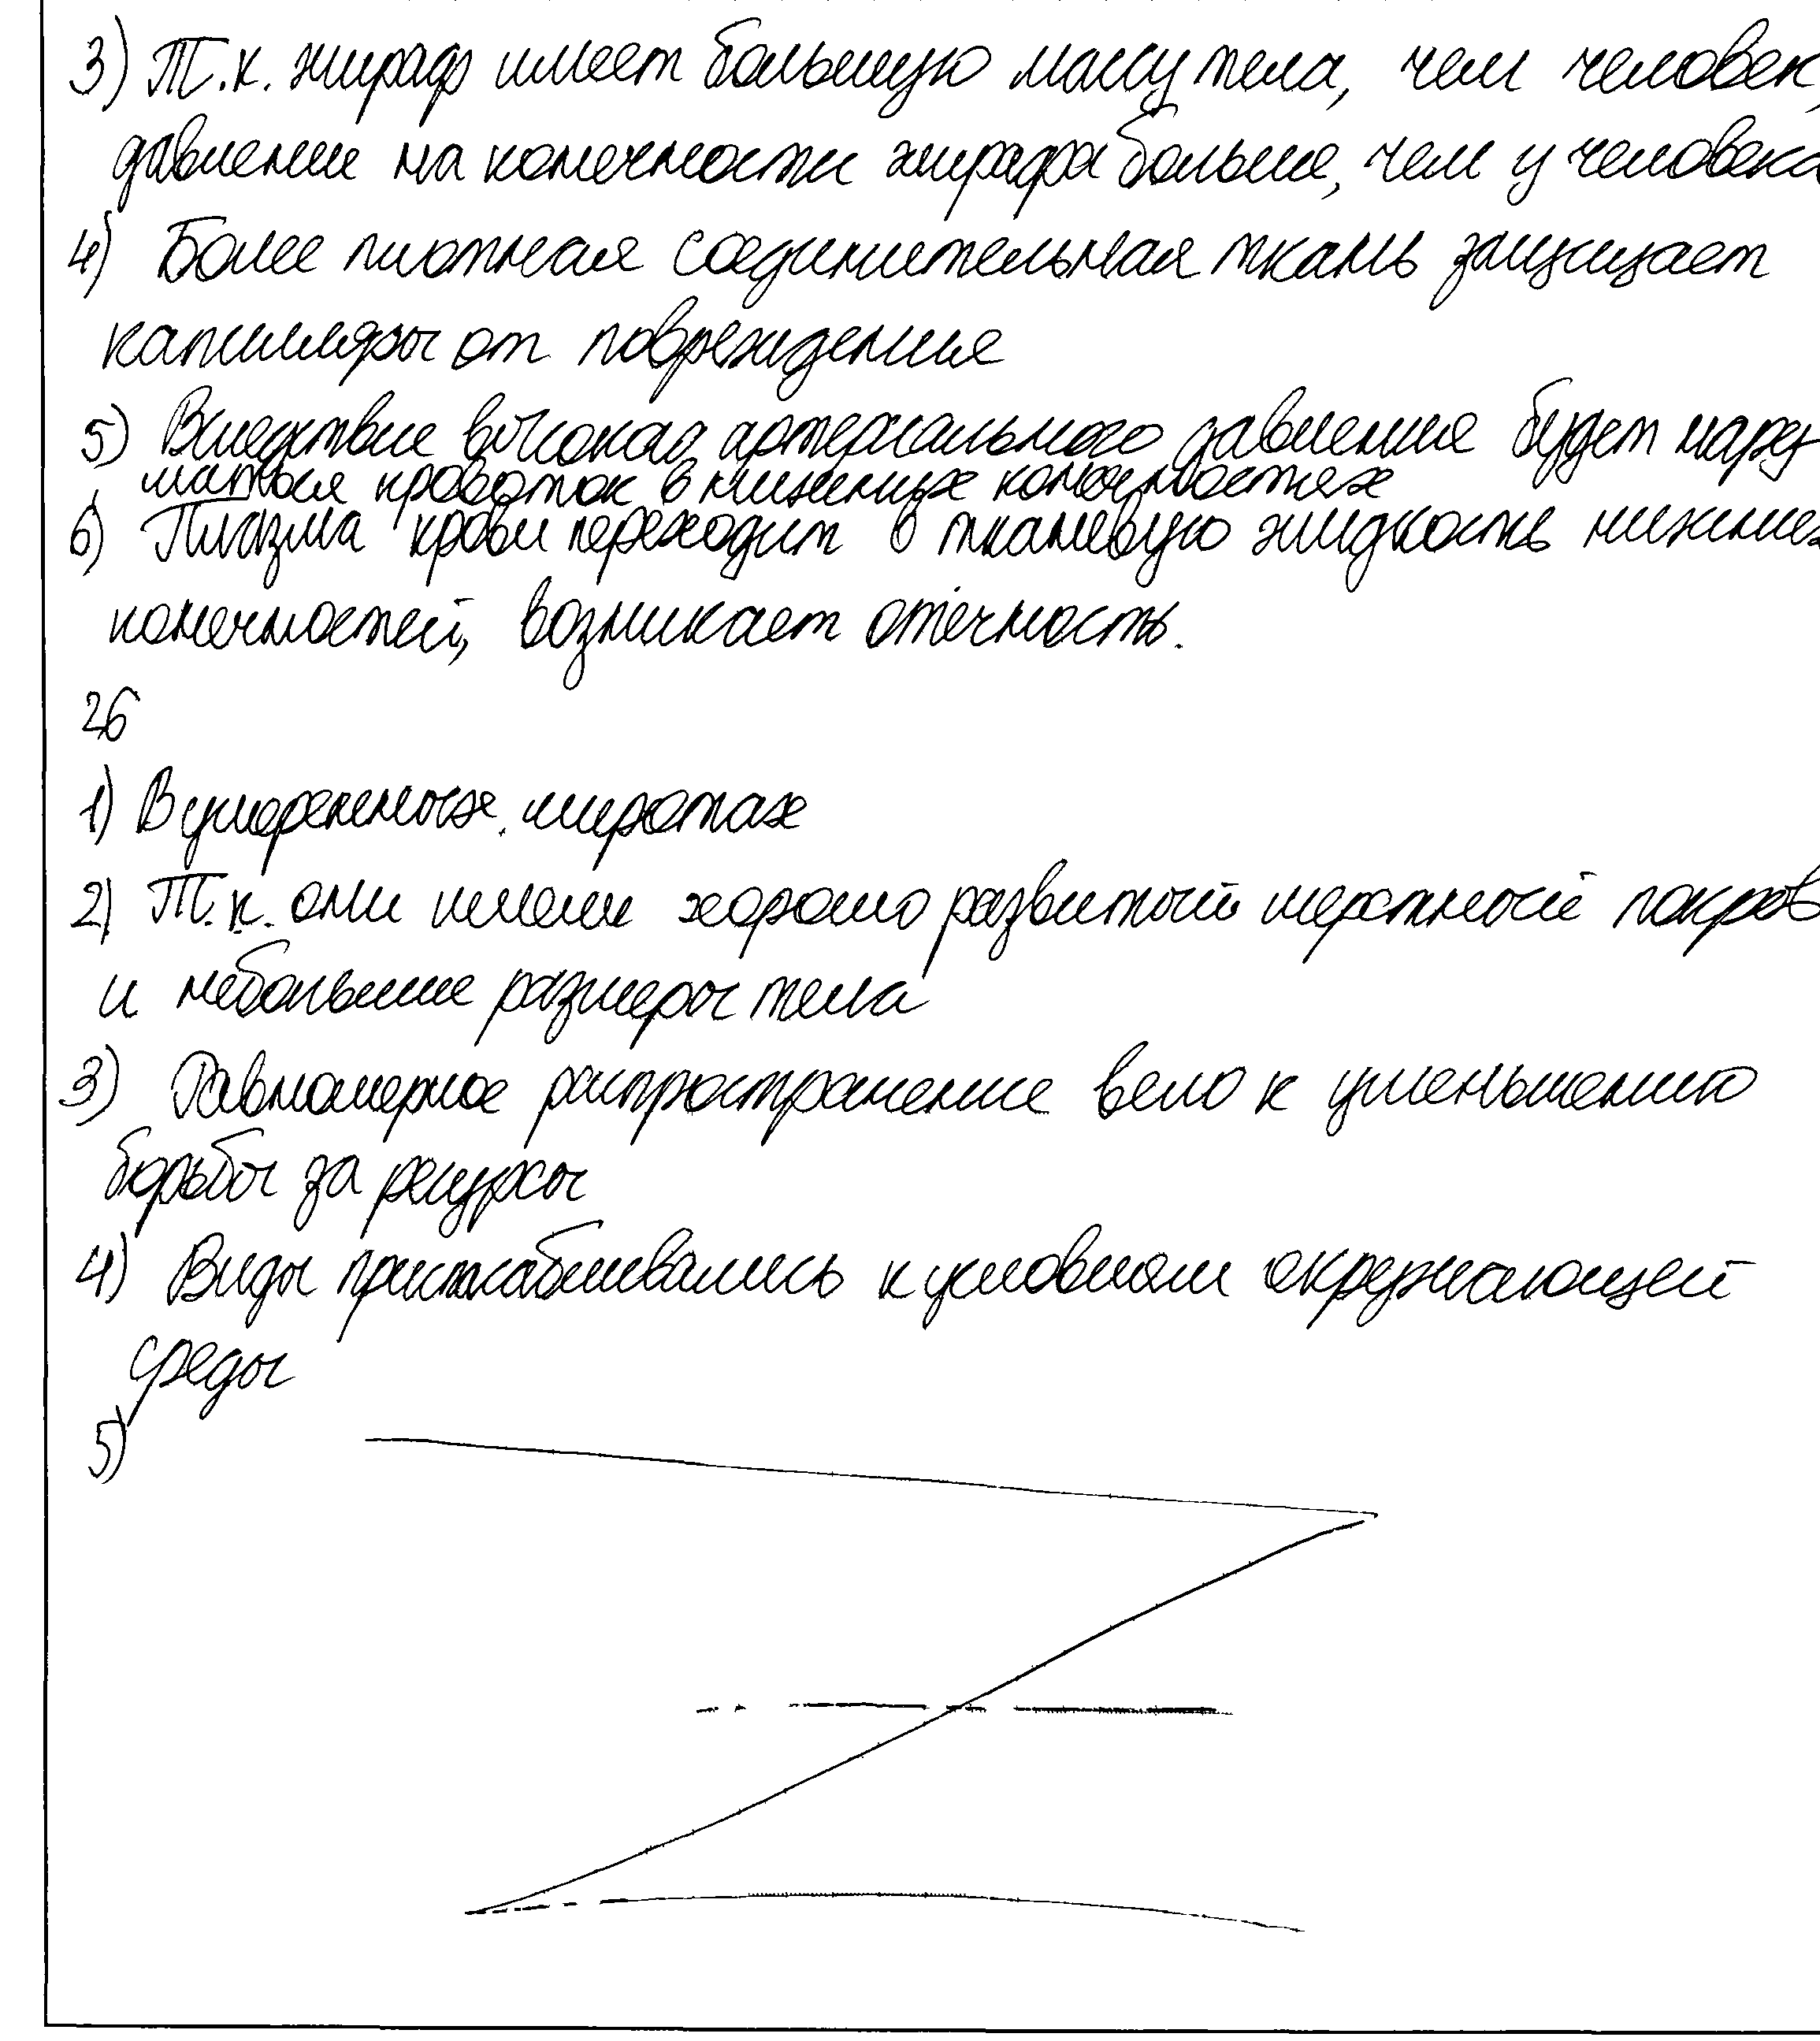 3) Т.к. жираф имеет большую массу тела, чем человек,
давление на конечности жирафа больше, чем у человека
4) Более плотная соединительная ткань защищает
капилляры от повреждения
5) Вследствие высокого артериального давления будет нару-
шаться кровоток в нижних конечностях
6) Плазма крови переходит в тканевую жидкость нижних
конечностей, возникает отечность.
26
1) В умеренных широтах
2) Т.к. они имели хорошо развитый шерстный покров
и небольшие размеры тела
3) Равномерное распространение вело к уменьшению
борьбы за ресурсы
4) Виды приспосабливались к условиям окружающей
среды
5)